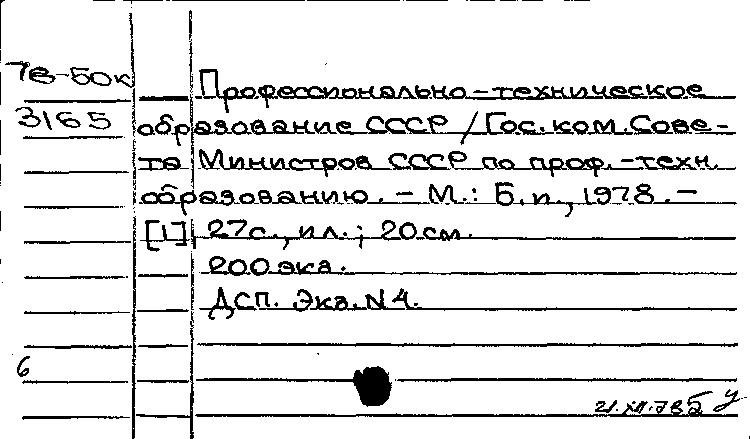 78-50к
3165
Профессионально-техническое
образование СССР / Гос. ком. Сове-
та Министров СССР по проф.-техн.
образованию. - М.: Б.и., 1978. -
[1], 27с., ил.; 20 см.
200 экз.
ДСП. Экз. N4.
6
21.XII.78